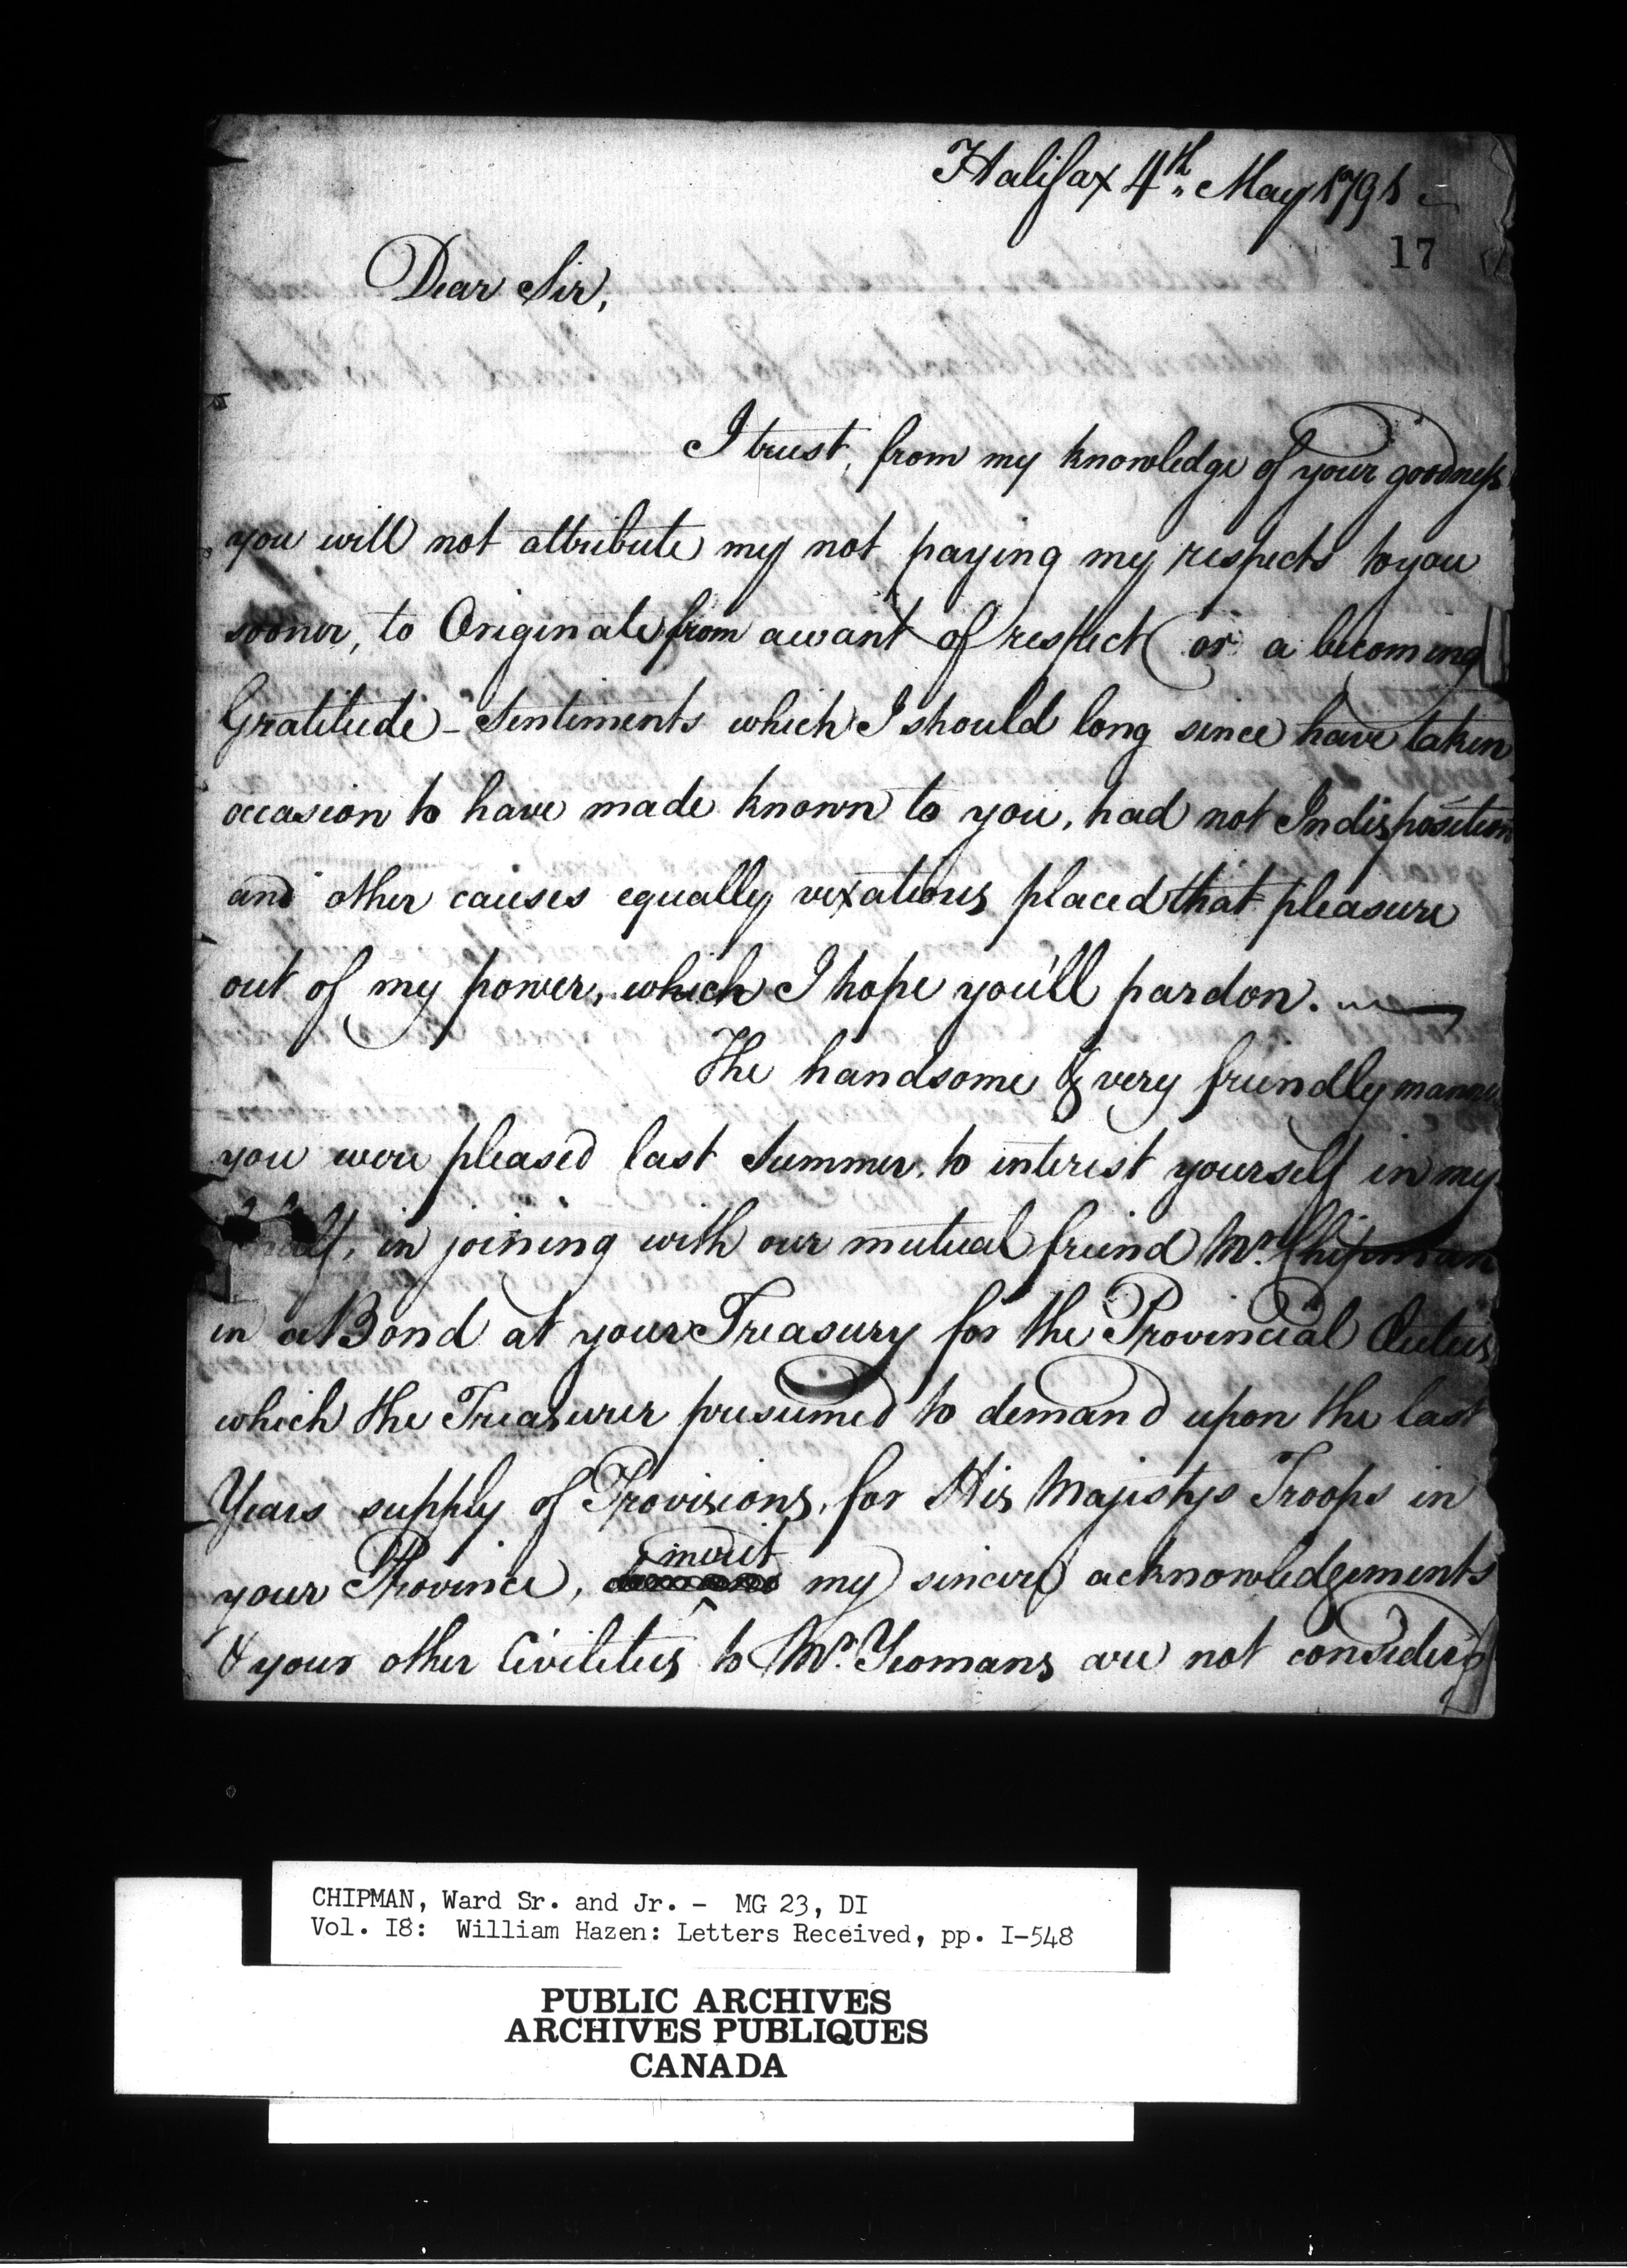 Halifax 4th. May 1791
17
Dear Sir,
I trust, from my knowledge of your goodness
you will not attribute my not paying my respects to you
sooner, to Originate from a want of respect or a becoming
Gratitude - Sentiments which I should long since have taken
occasion to have made known to you, had not Indisposition
and other causes equally vexatious placed that pleasure
out of my power, which I hope you'll pardon.
The handsome & very friendly manner
you were pleased last Summer, to interest yourself in my
behalf, in joining with our mutual friend Mr. Chipman
in a Bond at your Treasury for the Provincial Duties
which the Treasurer presumed to demand upon the last
Years supply of Provisions, for His Majestys Troops in
your Province, merit my sincere acknowledgements
& your other Civilities to Mr. Yeomans are not consider'd
CHIPMAN, Ward Sr. and Jr. - MG 23, DI
Vol. I8: William Hazen: Letters Received, pp. I-548
PUBLIC ARCHIVES
ARCHIVES PUBLIQUES
CANADA